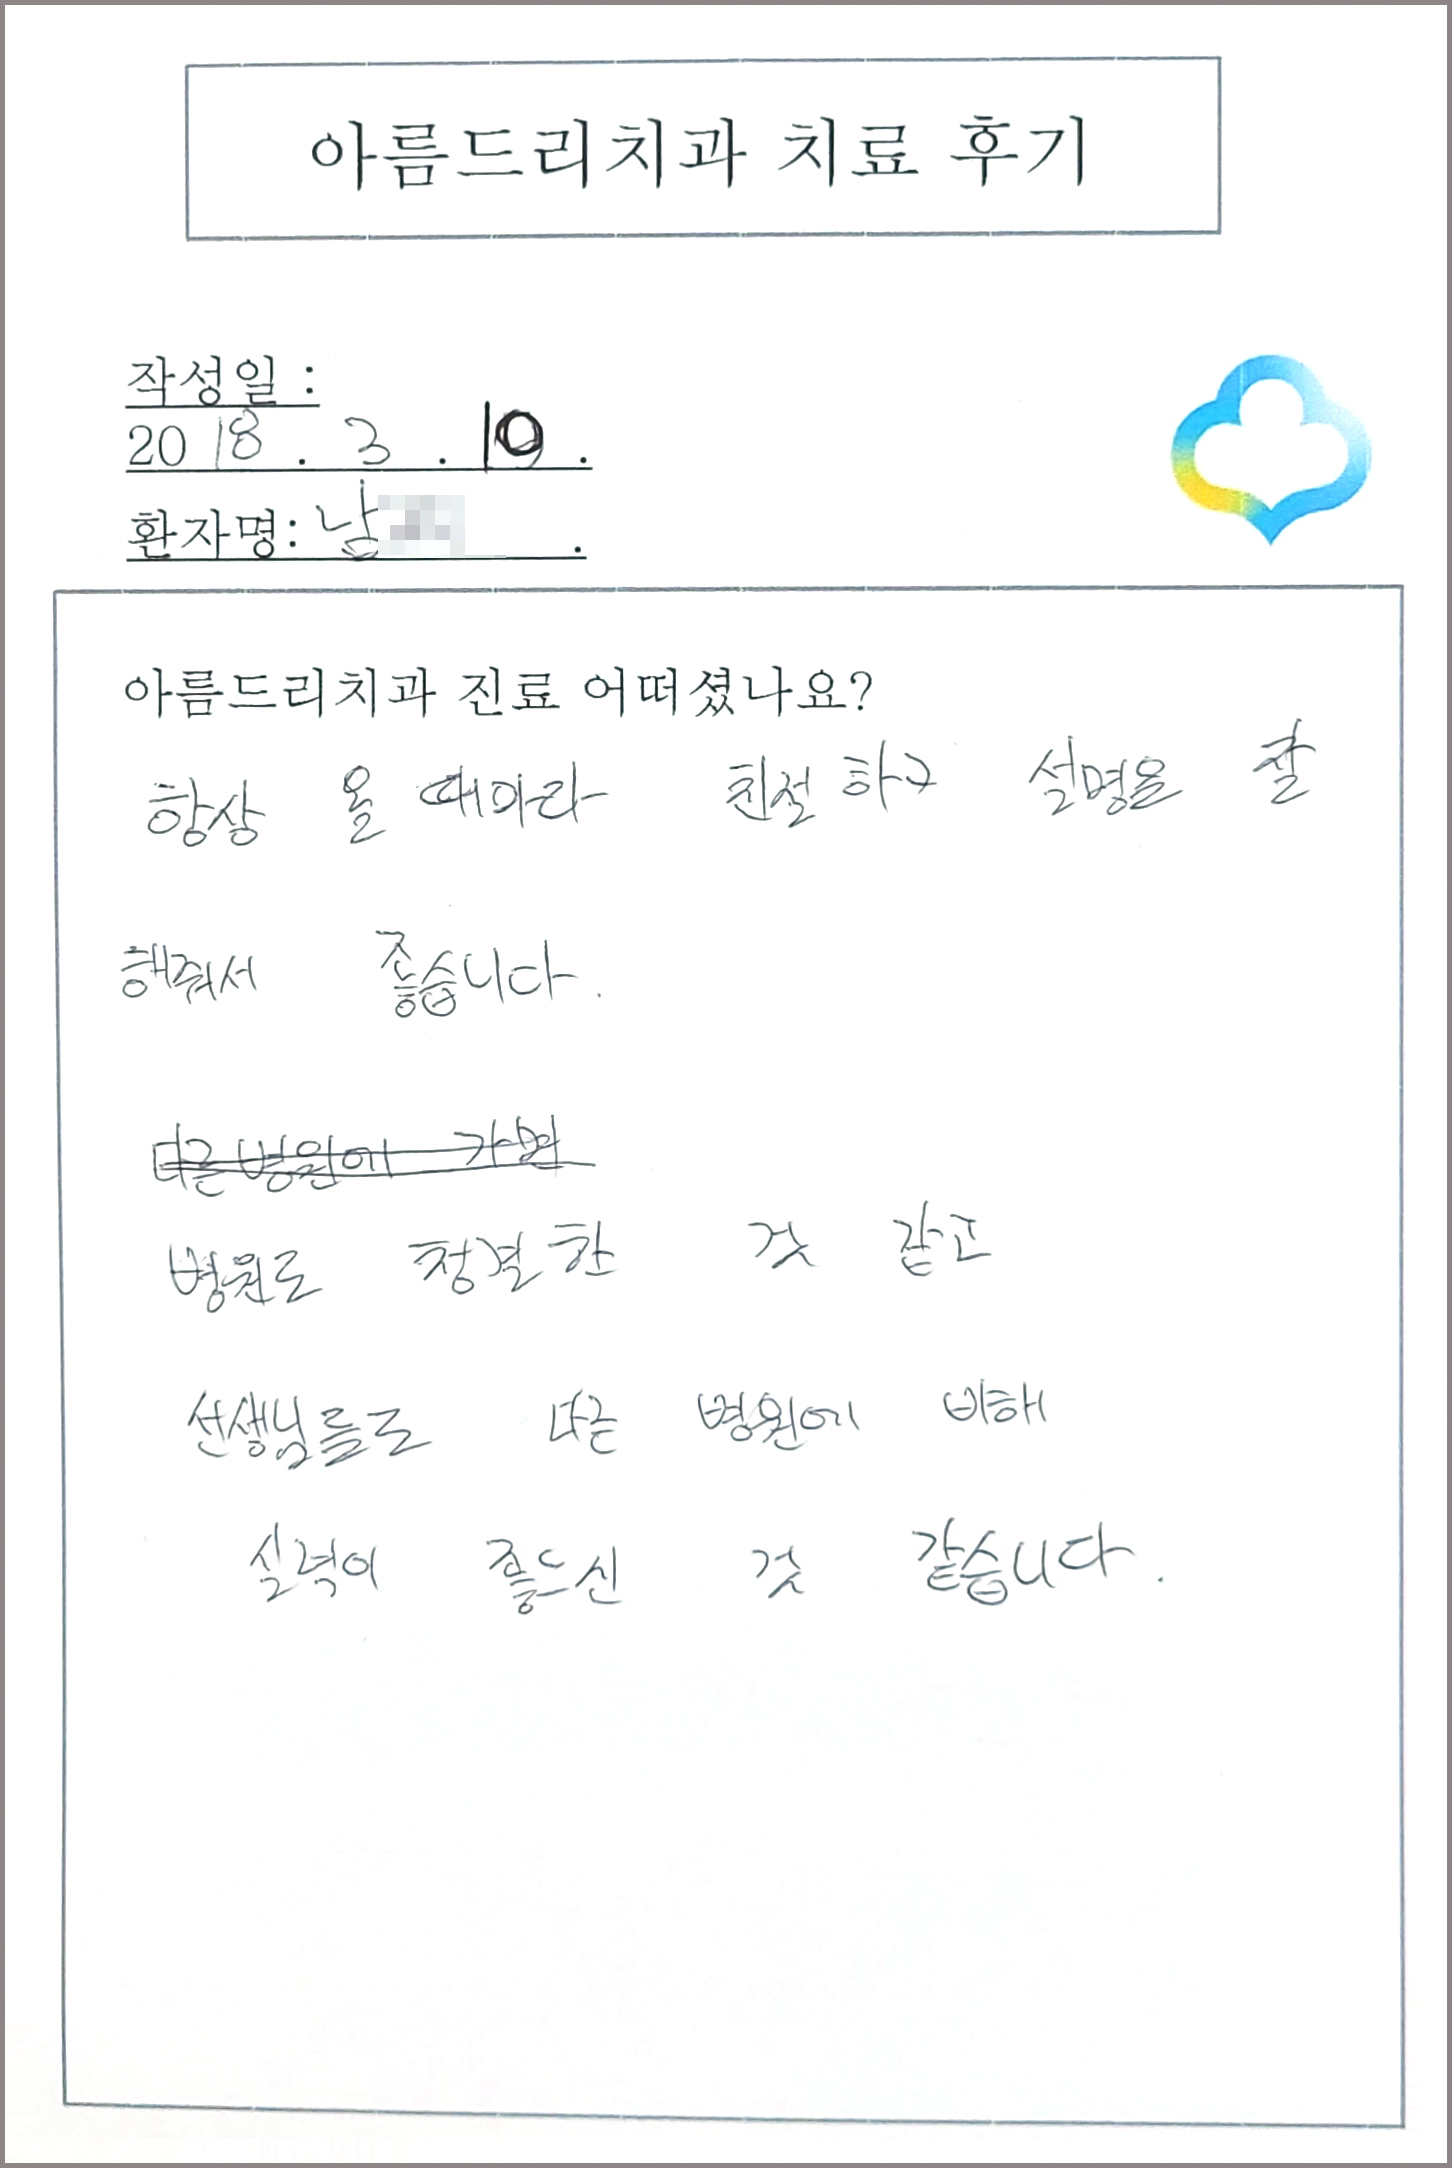 아름드리치과 치료 후기
작성일 :
2018 . 3 . 10 .
환자명: 남 .
아름드리치과 진료 어떠셨나요?
항상 올 때마다 친절하구 설명을 잘
해줘서 좋습니다.
다른병원에 가면
병원도 청결한 것 같고
선생님들도 다른 병원에 비해
실력이 좋으신 것 같습니다.